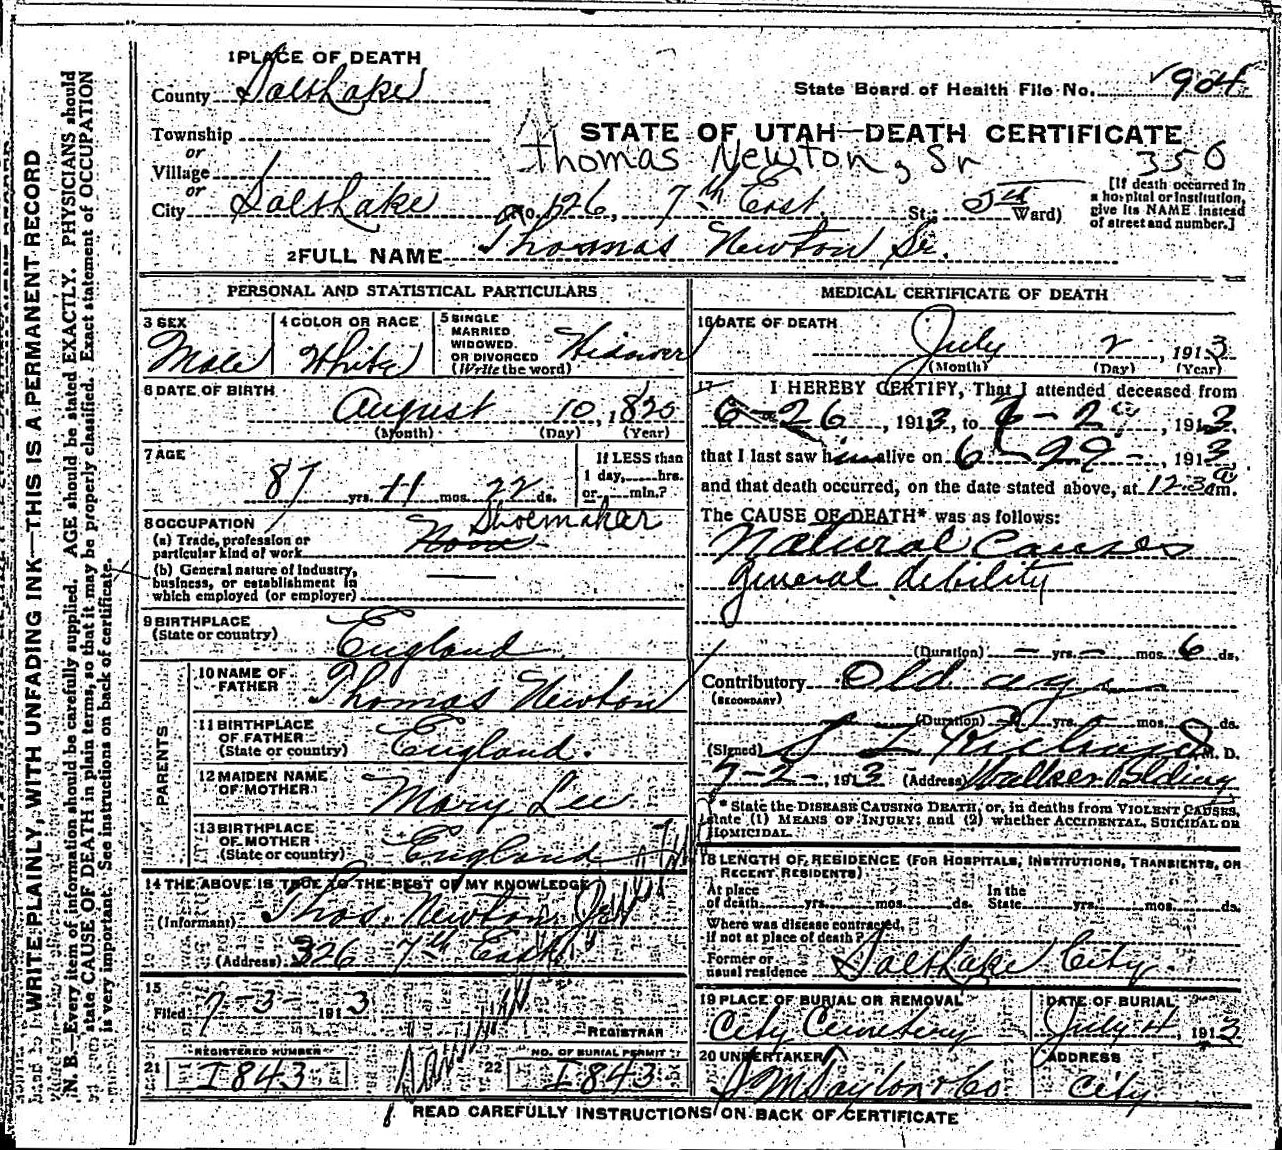 1 PLACE OF DEATH
County Salt Lake
State Board of Health File No. 904
Township
or
Village
or
City Salt Lake
STATE OF UTAH—DEATH CERTIFICATE
Thomas Newton, Sr
350
No. 126, 7th East St.; 5th Ward)
[If death occurred in
a hospital or institution,
give its NAME instead
of street and number.]
2 FULL NAME Thomas Newton Sr.
PERSONAL AND STATISTICAL PARTICULARS
3 SEX
Male
4 COLOR OR RACE
White
5 SINGLE
MARRIED
WIDOWED
OR DIVORCED
(Write the word)
Widower
6 DATE OF BIRTH
August 10, 1825
(Month) (Day) (Year)
7 AGE
87 yrs. 11 mos. 22 ds.
If LESS than
1 day, hrs.
or min.?
8 OCCUPATION
(a) Trade, profession or
particular kind of work
Shoemaker
None
(b) General nature of industry,
business, or establishment in
which employed (or employer)
9 BIRTHPLACE
(State or country)
England
PARENTS
10 NAME OF
FATHER
Thomas Newton
11 BIRTHPLACE
OF FATHER
(State or country)
England.
12 MAIDEN NAME
OF MOTHER
Mary Lee
13 BIRTHPLACE
OF MOTHER
(State or country)
England
14 THE ABOVE IS TRUE TO THE BEST OF MY KNOWLEDGE
(Informant) Thos. Newton Jr
(Address) 326 7th East
15
Filed 7-3- 1913
REGISTRAR
21 REGISTERED NUMBER
I843
22 NO. OF BURIAL PERMIT
I843
MEDICAL CERTIFICATE OF DEATH
16 DATE OF DEATH
July 2, 1913
(Month) (Day) (Year)
17 I HEREBY CERTIFY, That I attended deceased from
6-26, 1913, to 1913,
that I last saw him alive on 6-29-, 1913
and that death occurred, on the date stated above, at 12-30 a m.
The CAUSE OF DEATH* was as follows:
Natural Causes
general debility
(Duration) - yrs. - mos. 6 ds.
Contributory Old age
(SECONDARY)
(Duration) yrs. mos. ds.
(Signed) M. D.
7-2-, 1913 (Address) Walker Blding
* State the DISEASE CAUSING DEATH, or, in deaths from VIOLENT CAUSES,
state (1) MEANS OF INJURY; and (2) whether ACCIDENTAL, SUICIDAL OR
HOMICIDAL.
18 LENGTH OF RESIDENCE (FOR HOSPITALS, INSTITUTIONS, TRANSIENTS, OR
RECENT RESIDENTS)
At place
of death yrs. mos. ds.
In the
State yrs. mos. ds.
Where was disease contracted,
if not at place of death?
Former or
usual residence Salt Lake City
19 PLACE OF BURIAL OR REMOVAL
City Cemetery
DATE OF BURIAL
July 4 1913
20 UNDERTAKER
S M Taylor & Co
ADDRESS
City
READ CAREFULLY INSTRUCTIONS ON BACK OF CERTIFICATE
WRITE PLAINLY, WITH UNFADING INK—THIS IS A PERMANENT RECORD
N. B.—Every item of information should be carefully supplied. AGE should be stated EXACTLY. PHYSICIANS should
state CAUSE OF DEATH in plain terms, so that it may be properly classified. Exact statement of OCCUPATION
is very important. See instructions on back of certificate.